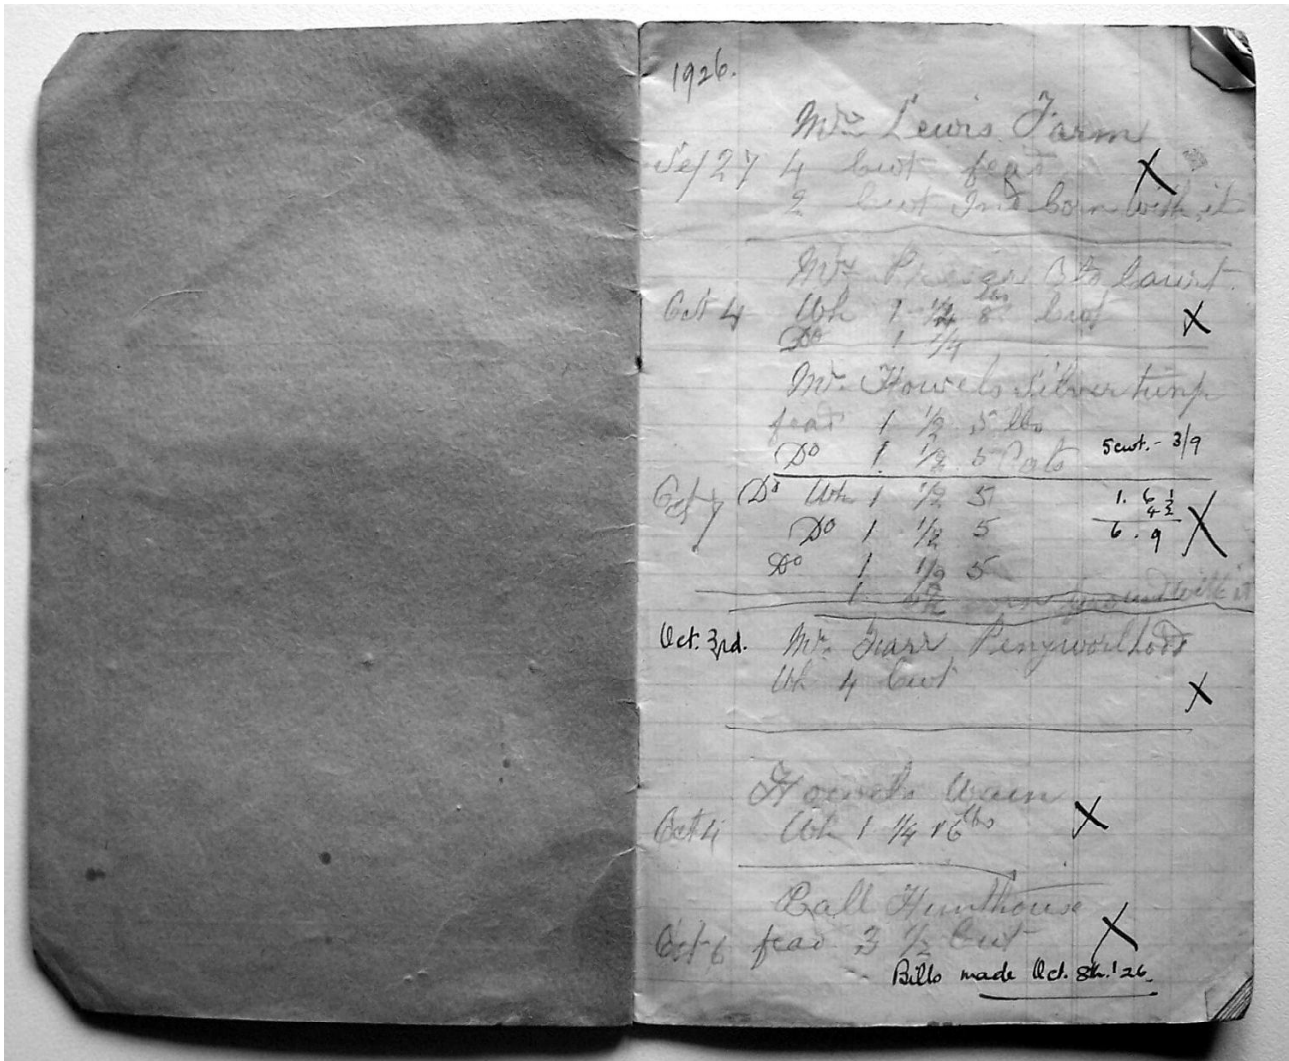 1926.
Mr Lewis Farm
Sep 27 4 Cwt fead
2 Cwt Ind Corn with it
Mr Court
Oct 4 Wh 1 1/4 8 lbs Cwt
Do 1 1/4
Mr Howels Silvertump
fead 1 1/2 5 lbs
Do 1 1/2 5 Oats 5 cwt. - 3/9
Oct 7 Do Wh 1 1/2 5 1. 6 1/2
Do 1 1/2 5 6. 9
Do 1 1/2 5
1 corn ground with it
Oct. 3rd. Mr. Farr Penyworlodd
Wh 4 Cwt
Howels Wain
Oct 4 Wh 1 1/4 16 lbs
Ball Hunthouse
Oct 6 fead 3 1/2 Cwt
Bills made Oct. 8th. '26.